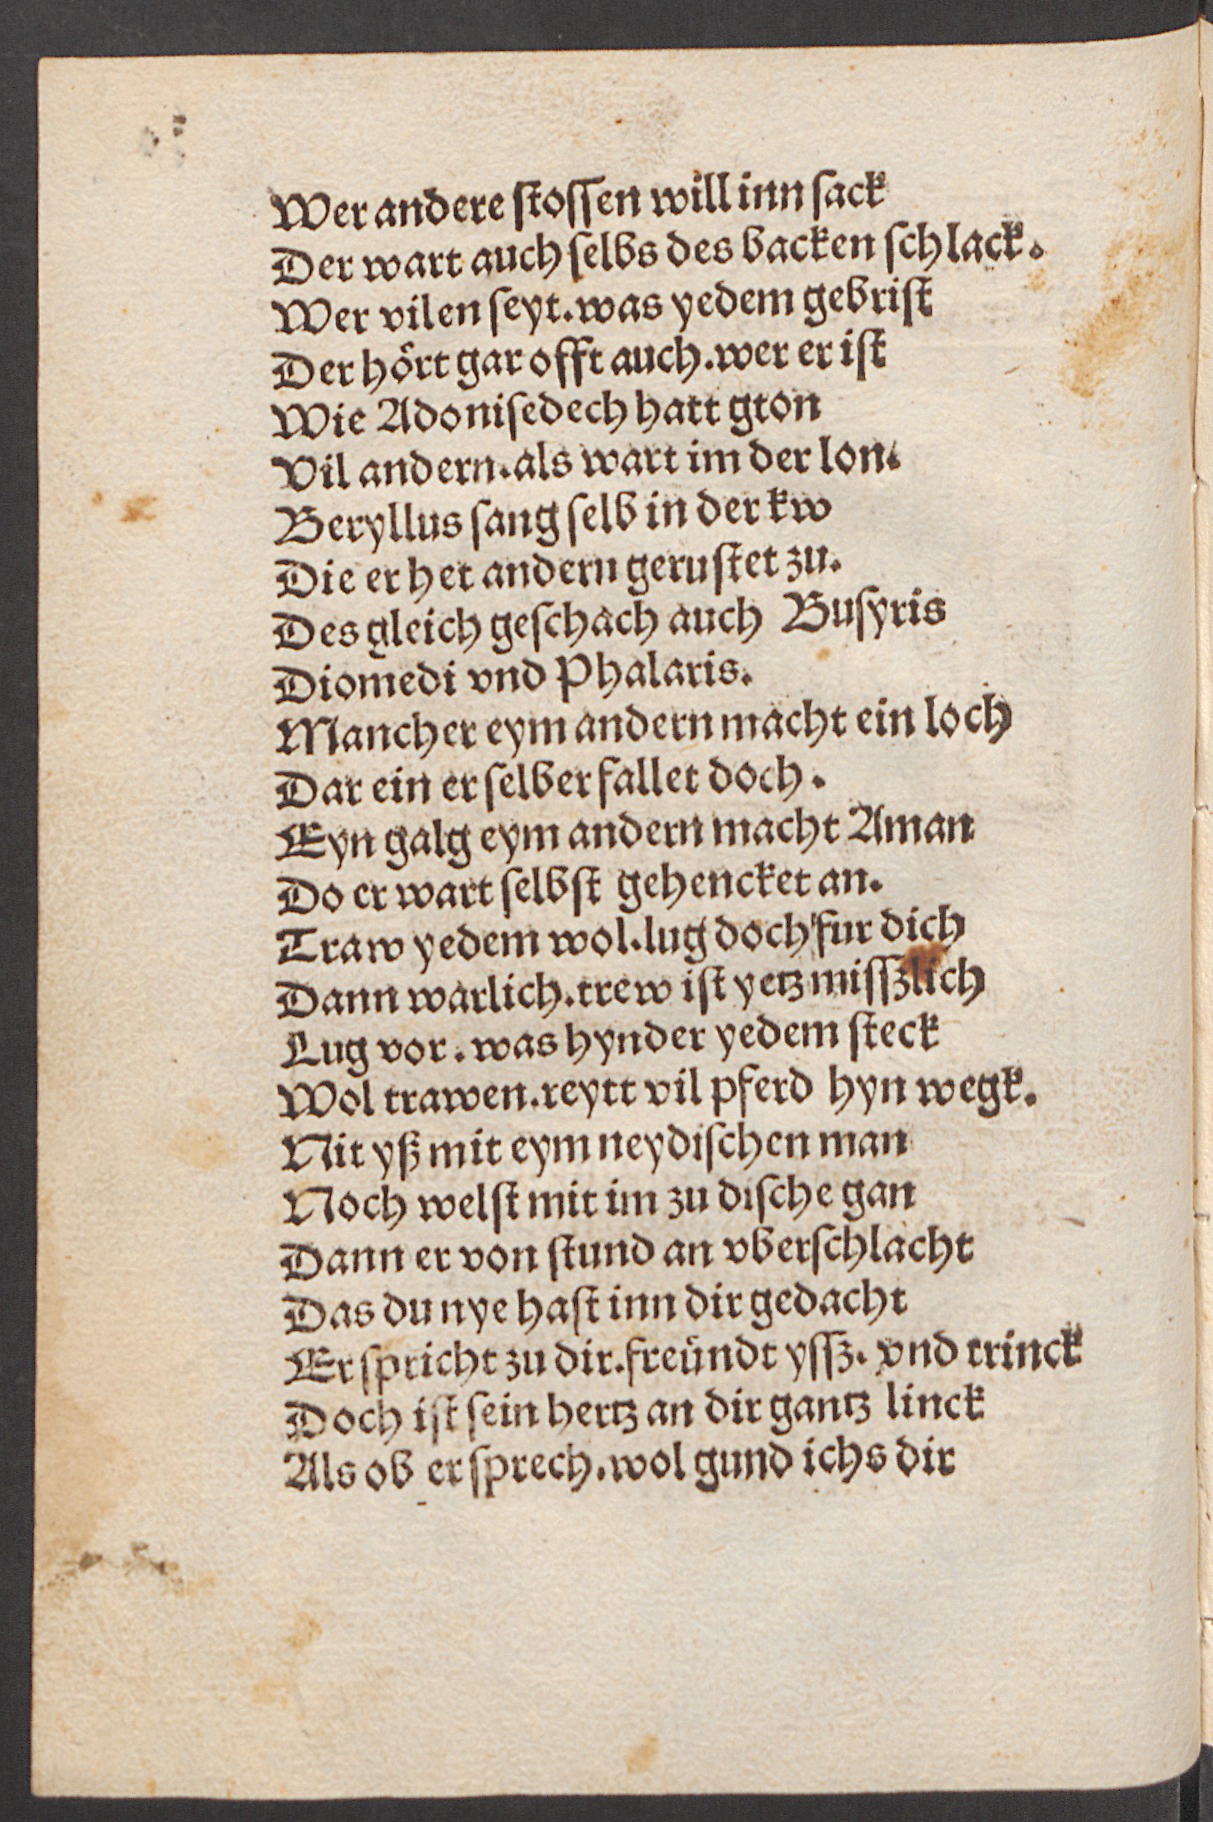 Wer andere ſtoſſen will inn ſack
Der wart auch ſelbs des backen ſchlack.
Wer vilen ſeyt. was yedem gebriſt
Der hört gar offt auch. wer er iſt
Wie Adoniſedech hatt gton
Vil andern. als wart im der lon.
Beryllus ſang ſelb in der kw
Die er het andern geruſtet zu.
Des gleich geſchach auch Buſyris
Diomedi vnd Phalaris.
Mancher eym andern macht ein loch
Dar ein er ſelber fallet doch.
Eyn galg eym andern macht Aman
Do er wart ſelbſt gehencket an.
Traw yedem wol. lug doch fur dich
Dann warlich. trew iſt yetz miſſzlich
Lug vor. was hynder yedem ſteck
Wol trawen. reytt vil pferd hyn wegk.
Nit yß mit eym neydiſchen man
Noch welſt mit im zu diſche gan
Dann er von ſtund an vberſchlacht
Das du nye haſt inn dir gedacht
Er ſpricht zu dir. freündt yſſz. vnd trinck
Doch iſt ſein hertz an dir gantz linck
Als ob er ſprech. wol gund ichs dir